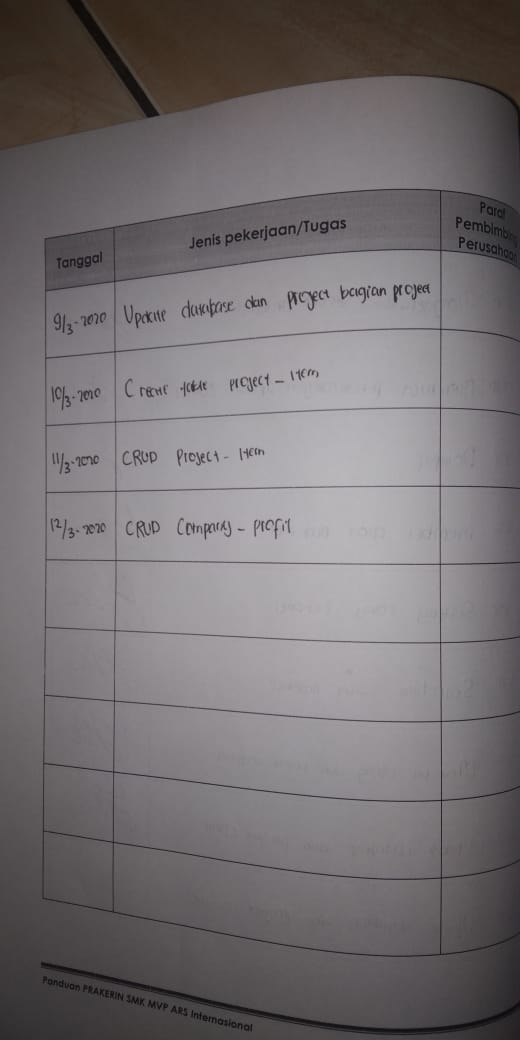 Tanggal
Jenis pekerjaan/Tugas
Paraf
Pembimbing
Perusahaan
9/3-2020 Update database dan project bagian project
10/3-2020 Create table project-item
11/3-2020 CRUD Project-Item
12/3-2020 CRUD Company-profil
Panduan PRAKERIN SMK MVP ARS Internasional